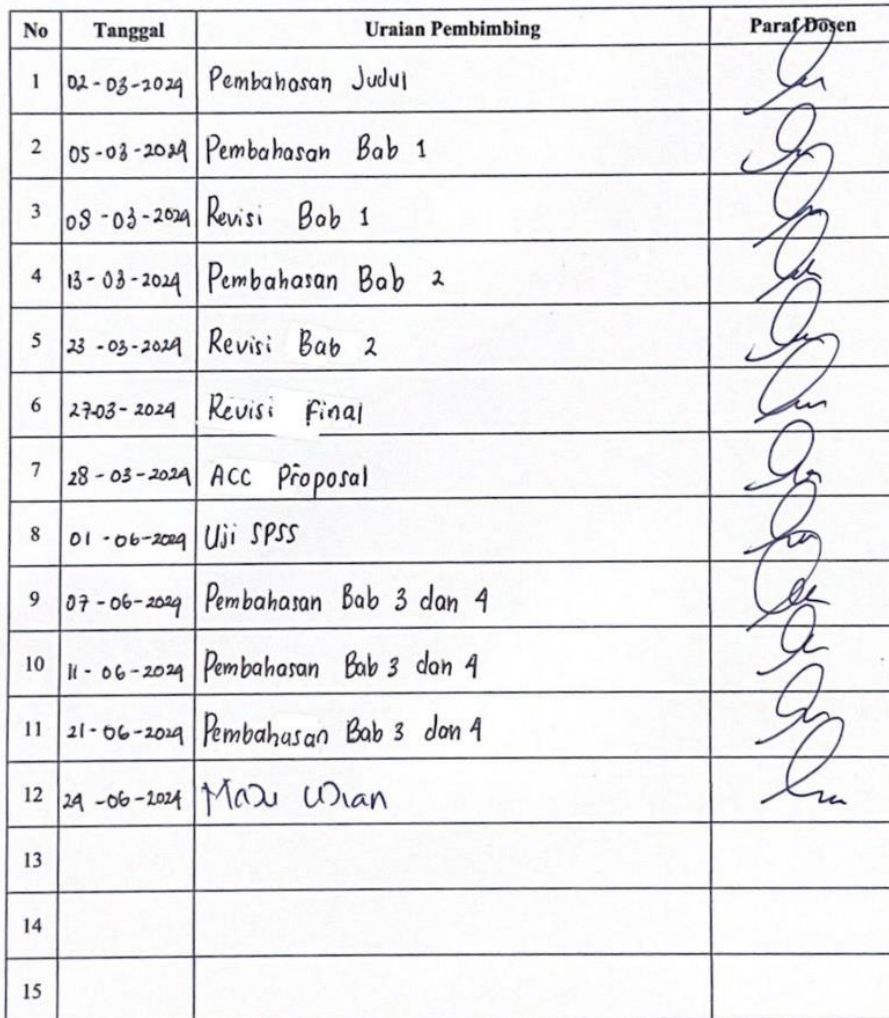 No Tanggal Uraian Pembimbing Paraf Dosen
1 02-03-2024 Pembahasan Judul
2 05-03-2024 Pembahasan Bab 1
3 08-03-2024 Revisi Bab 1
4 13-03-2024 Pembahasan Bab 2
5 23-03-2024 Revisi Bab 2
6 27-03-2024 Revisi Final
7 28-03-2024 ACC Proposal
8 01-06-2024 Uji SPSS
9 07-06-2024 Pembahasan Bab 3 dan 4
10 11-06-2024 Pembahasan Bab 3 dan 4
11 21-06-2024 Pembahasan Bab 3 dan 4
12 24-06-2024 Maju Ujian
13
14
15